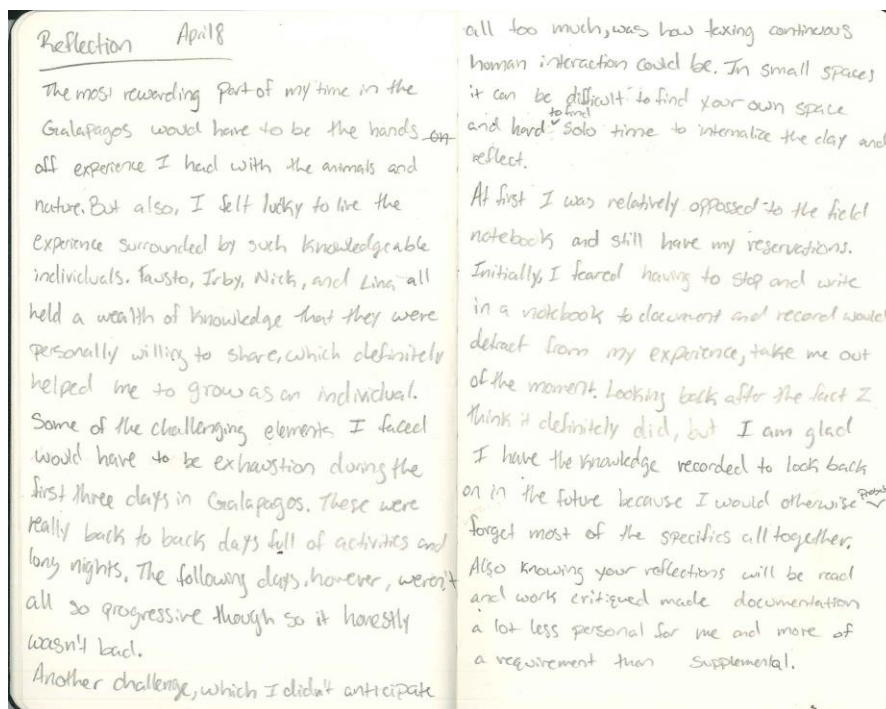 Reflection April 8
The most rewarding part of my time in the
Galapagos would have to be the hands on
off experience I had with the animals and
nature. But also, I felt lucky to live the
experience surrounded by such knowledgeable
individuals. Fausto, Irby, Nick, and Lina all
held a wealth of knowledge that they were
personally willing to share, which definitely
helped me to grow as an individual.
Some of the challenging elements I faced
would have to be exhaustion during the
first three days in Galapagos. These were
really back to back days full of activities and
long nights. The following days, however, weren't
all so progressive though so it honestly
wasn't bad.
Another challenge, which I didn't anticipate
all too much, was how taxing continuous
human interaction could be. In small spaces
it can be difficult to find your own space
and hard to find solo time to internalize the day and
reflect.
At first I was relatively oppossed to the field
notebook and still have my reservations.
Initially, I feared having to stop and write
in a notebook to document and record would
detract from my experience, take me out
of the moment. Looking back after the fact I
think it definitely did, but I am glad
I have the knowledge recorded to look back
on in the future because I would otherwise
forget most of the specifics all together.
Also knowing your reflections will be read
and work critiqued made documentation
a lot less personal for me and more of
a requirement than supplemental.